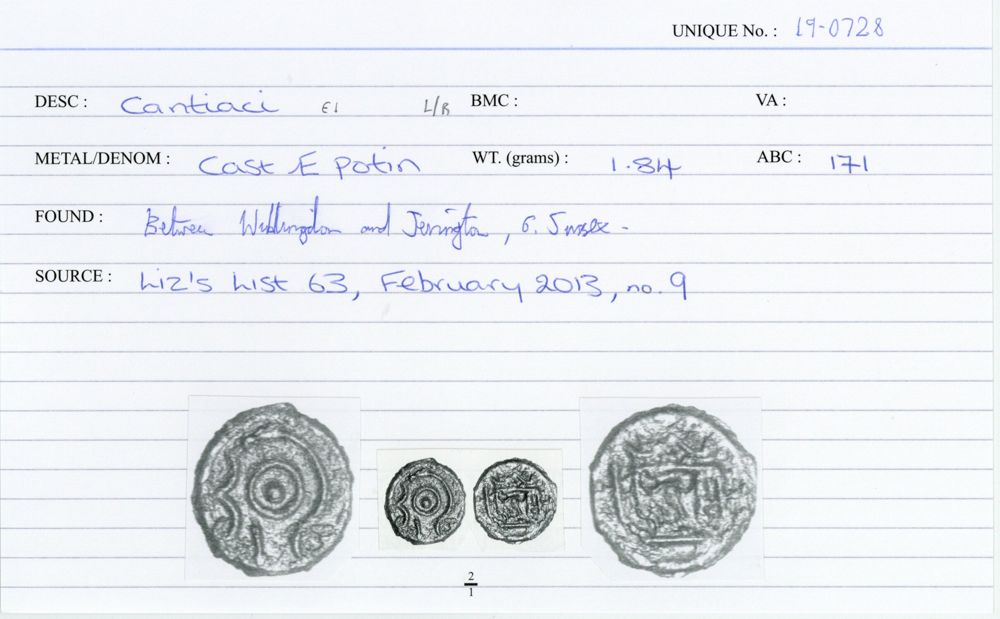 UNIQUE No. : 19-0728
DESC : Cantiaci E1 L/R BMC : VA :
METAL/DENOM : Cast Æ Potin WT. (grams) : 1.84 ABC : 171
FOUND : Between Willingdon and Jevington, E. Sussex -
SOURCE : Liz's List 63, February 2013, no. 9
2
1